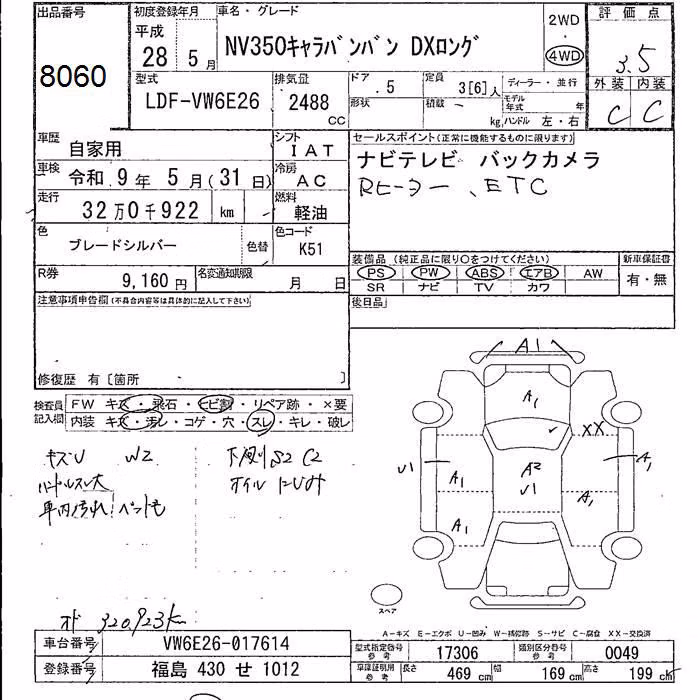 出品番号 8060
初度登録年月 平成 28年 5月
車名・グレード NV350キャラバンバン DXロング
2WD 4WD
評価点 3.5
外装 C 内装 C
型式 LDF-VW6E26
排気量 2488 CC
ドア .5
定員 3[6]人
ディーラー・並行
形状
積載 kg
モデル年式 年
ハンドル 左・右
車歴 自家用
シフト I AT
セールスポイント(正常に機能するものに限ります)
ナビテレビ バックカメラ
Rヒーター、ETC
車検 令和 9年 5月(31日)
冷房 AC
走行 32万0千922 km
燃料 軽油
色 ブレードシルバー
色替
色コード K51
装備品(純正品に限り○をつけてください)
PS PW ABS エアB AW
SR ナビ TV カワ
新車保証書 有・無
R券 9,160円
名変通知期限 月 日
後日品
注意事項申告欄(不具合内容等は具体的に記入して下さい)
修復歴 有〔箇所 〕
検査員記入欄
FW キズ・飛石・ヒビ割・リペア跡・×要
内装 キズ・汚レ・コゲ・穴・スレ・キレ・破レ
キズU W2
下廻りS2 C2
ハンドルスレ大
オイルにじみ
車内汚れ!ペットも
A1
A1
XX
A2
U1
U1
A1
A1
A1
A1
スペア
オド 320,923km
A-キズ E-エクボ U-凹み W-補修跡 S-サビ C-腐食 XX-交換済
車台番号 VW6E26-017614
型式指定番号参考 17306
類別区分番号参考 0049
登録番号 福島 430 せ 1012
車庫証明用参考 長さ 469 cm 幅 169 cm 高さ 199 cm